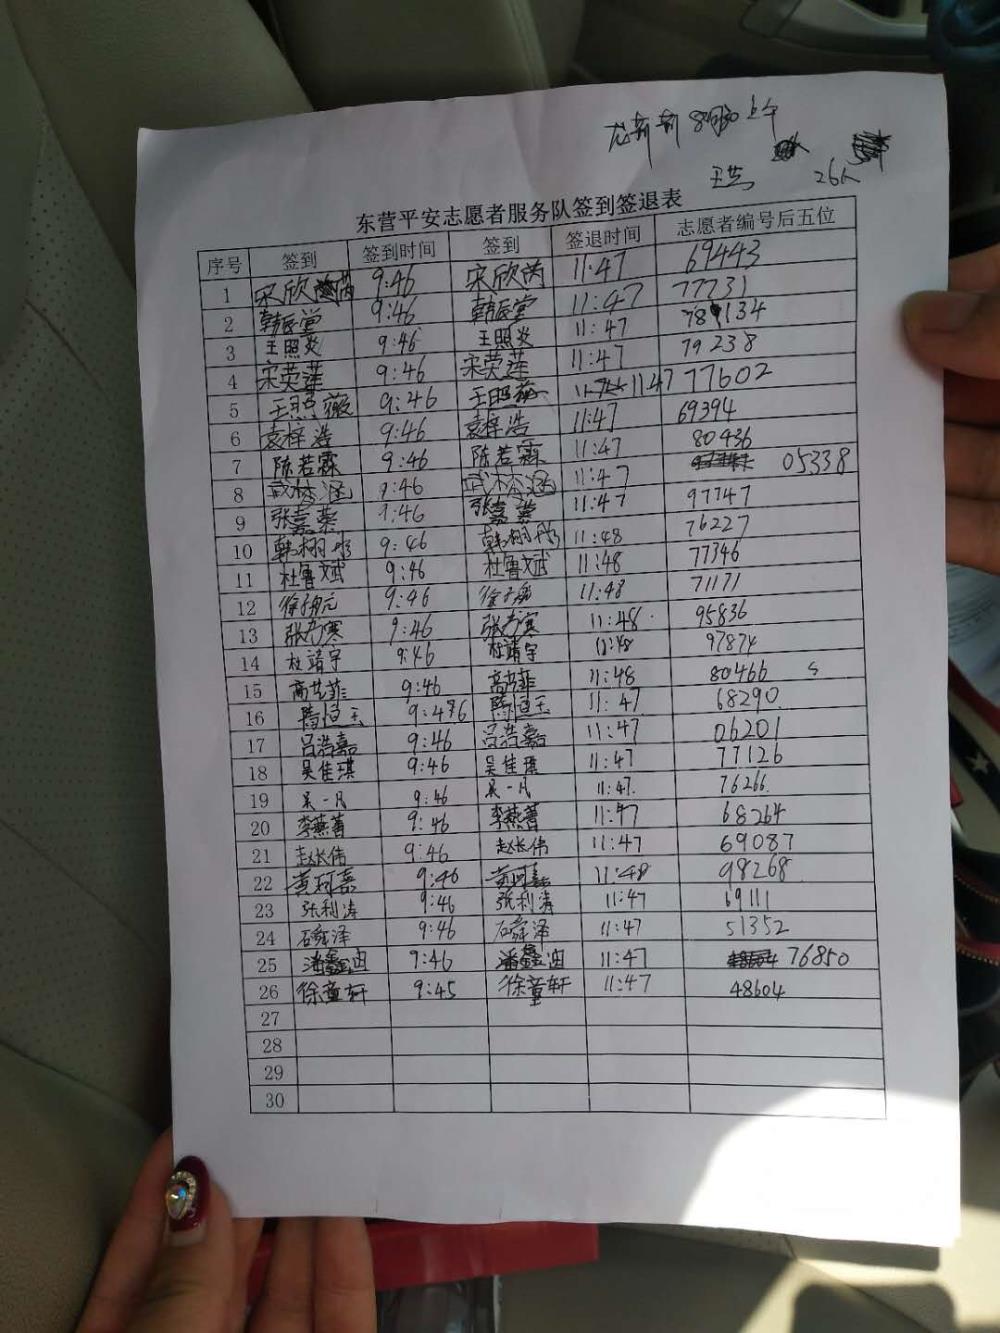 8月30上午
26人
东营平安志愿者服务队签到签退表
序号 签到 签到时间 签到 签退时间 志愿者编号后五位
1 宋欣芮 9:46 宋欣芮 11:47 69443
2 韩辰堂 9:46 韩辰堂 11:47 77731
3 王照炎 9:46 王照炎 11:47 78134
4 宋荧莲 9:46 宋荧莲 11:47 79238
5 王照薇 9:46 王照薇 11:47 77602
6 袁梓浩 9:46 袁梓浩 11:47 69394
7 陈若霖 9:46 陈若霖 11:47 80436
8 武梦涵 9:46 武梦涵 11:47 05338
9 张嘉蓁 9:46 张嘉蓁 11:47 97747
10 韩栩彤 9:46 韩栩彤 11:48 76227
11 杜鲁文斌 9:46 杜鲁文斌 11:48 77346
12 9:46 11:48 71171
13 9:46 11:48 95836
14 杜靖宇 9:46 杜靖宇 11:48 97874
15 高艺菲 9:46 高艺菲 11:48 80466
16 陈恒玉 9:46 陈恒玉 11:47 68290
17 吕浩嘉 9:46 吕浩嘉 11:47 06201
18 吴佳琪 9:46 吴佳琪 11:47 77126
19 吴一凡 9:46 吴一凡 11:47 76266
20 李燕菁 9:46 李燕菁 11:47 68264
21 赵长伟 9:46 赵长伟 11:47 69087
22 黄珂嘉 9:46 黄珂嘉 11:48 98268
23 张利涛 9:46 张利涛 11:47 69111
24 石舜泽 9:46 石舜泽 11:47 51352
25 潘鑫迪 9:46 潘鑫迪 11:47 76850
26 徐童轩 9:45 徐童轩 11:47 48604
27
28
29
30